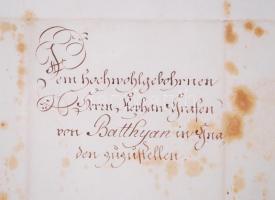 Dem Hochwohlgebohrnen
Herrn Herrn Grafen
von Batthyan in Gna
den zuzustellen.